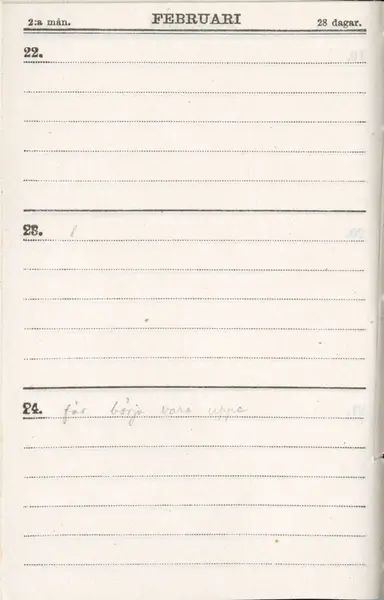 2:a mån. FEBRUARI 28 dagar.
22.
23.
24. får börja vara uppe